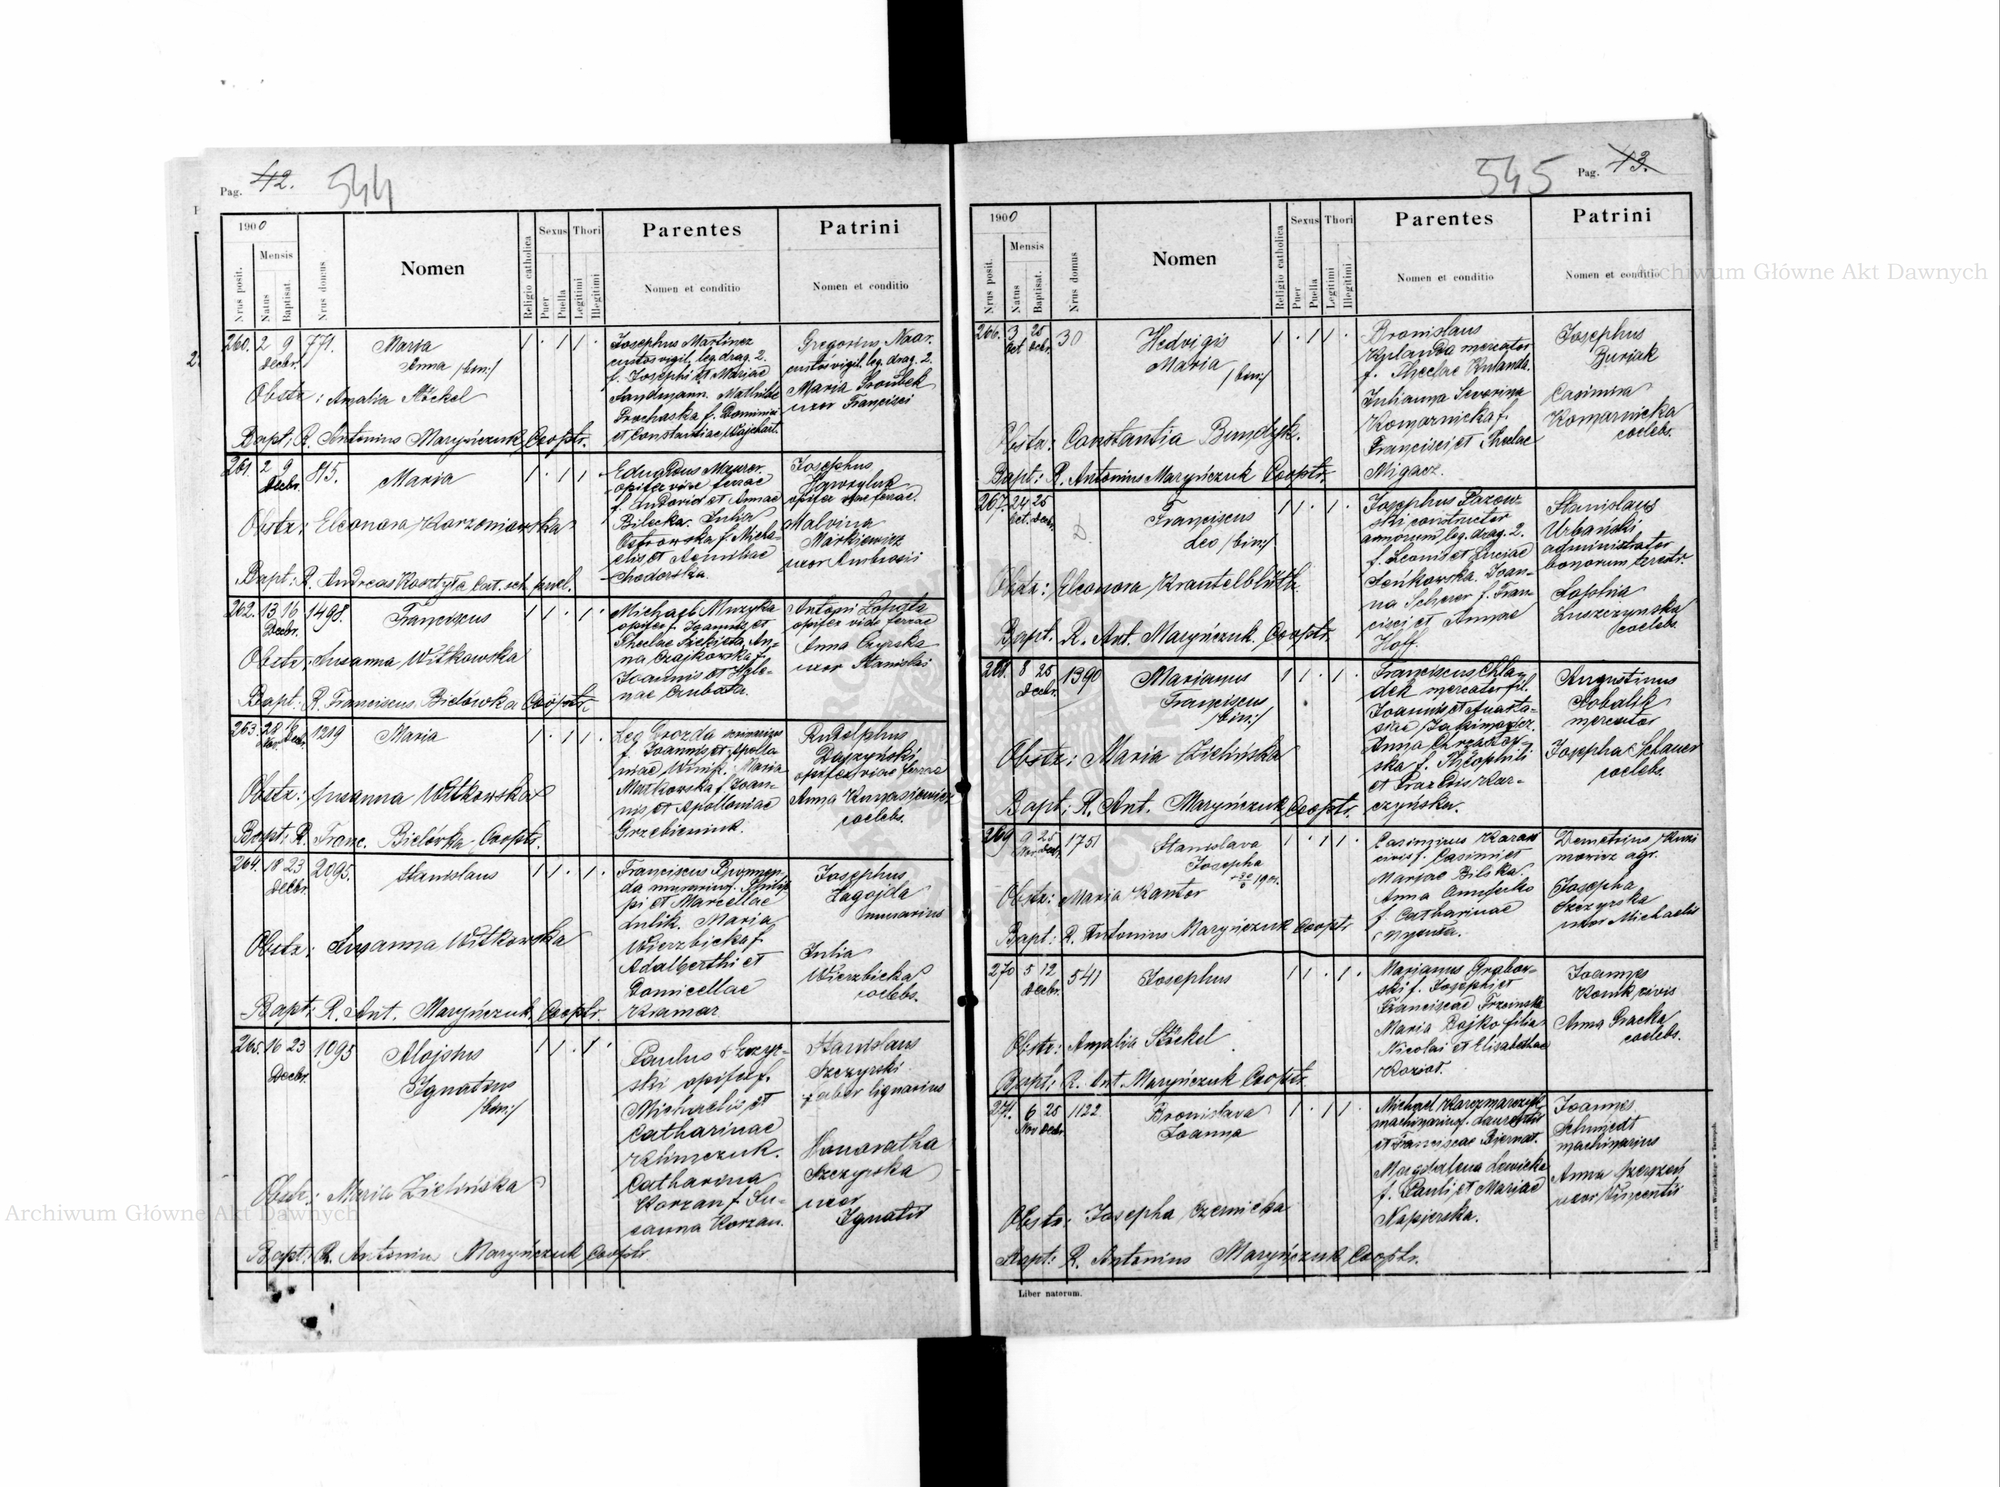 Pag. 42. 544
1900
Nrus posit.
Mensis
Natus
Baptisat.
Nrus domus
Nomen
Religio catholica
Sexus
Puer
Puella
Thori
Legitimi
Illegitimi
Parentes
Nomen et conditio
Patrini
Nomen et conditio
260. 2 9 Decbr. 771.
Maria
Anna /bin:/
Obstr: Amalia Stöckel
Bapt: R. Antonius Maryńczuk Cooptr.
Josephus Martinez
custos vigil. leg. drag. 2.
f. Josephi et Mariae
Sandmann. Mathilde
Prochaska f. Dominici
et Constantiae Wajchart.
Gregorius Naar.
custos vigil. leg. drag. 2.
Maria Sroubek
uxor Francisci
261. 2 9 Decbr. 815.
Maria
Obstr: Eleonora Korzeniowska
Bapt: R. Andreas
Maurer.
opifex viae ferrae
f. David et Annae
Bilecka. Julia
Ostrowska f. Micha-
elis et Aemiliae
Chodorska.
Josephus
opifex viae ferrae.
Malvina
Markiewicz
uxor Ambrosii
262. 13 16 Decbr. 1498.
Franciscus
Obstr: Susanna Witkowska
Bapt: R. Franciscus Bielówka Cooptr.
Michael Muzyka
opifex f. Joannis et
An-
na Czajkowska f.
Joannis et Hele-
nae
Antoni Łopata
opifex viae ferrae
Anna
uxor Stanislai
263. 28 Nov. Decbr. 1219
Maria
Obstr: Susanna Witkowska
Bapt: R. Franc. Bielówka Cooptr.
f. Joannis et Apollo-
niae Maria
f. Joan-
nis et Apolloniae
Grzebieniuk.
Rudolphus
opifex viae ferrae
Anna
coelebs.
264. 18 23 Decbr. 2095.
Stanislaus
Obstr: Susanna Witkowska
Bapt: R. Ant. Maryńczuk Cooptr.
Franciscus
da murarius f. Philip
pi et Marcellae
Lulik. Maria
Wierzbicka f.
Adalberthi et
Domicellae
Kramar
Josephus
Zagojda
murarius
Julia
Wierzbicka
coelebs.
265. 16 23 Decbr. 1095
Alojsius
Ignatius
/bin:/
Obstr: Maria Zielińska
Bapt: R. Antonius Maryńczuk Cooptr.
Paulus Szczyr-
ski opifex f.
Michaelis et
Catharinae
Klimczuk.
Catharina
Korzan f. Su-
sanna Korzan.
Stanislaus
Szczyrski
faber lignarius
Honoratha
Szczyrska
uxor
Ignatii
545 Pag. 43.
1900
Nrus posit.
Mensis
Natus
Baptisat.
Nrus domus
Nomen
Religio catholica
Sexus
Puer
Puella
Thori
Legitimi
Illegitimi
Parentes
Nomen et conditio
Patrini
Nomen et conditio
266. 3 Oct 25 Decbr. 30
Hedvigis
Maria
/bin:/
Obstr: Constantia
Bapt: R. Antonius Maryńczuk Cooptr.
Bronislaus
Rulanda mercator
f. Theclae Rulanda.
Julianna Severina
Komarnicka f.
Francisci et Theclae
Migacz.
Josephus
Buriak
Casimira
Komarnicka
coelebs.
267. 24 Oct. 25 Decbr.
Franciscus
Leo /bin:/
Obstr: Eleonora Krantelblüth
Bapt. R. Ant. Maryńczuk Cooptr.
Josephus
ski constructor
armorum leg. drag. 2.
f. Leonis et Luciae
Seńkowska. Joan-
na Scherer f. Fran-
cisci et Annae
Hoff.
Stanislaus
Urbański
administrator
bonorum terestr.
Sophia
Luszczynska
coelebs.
268. 8 25 Decbr. 1390
Marianus
Franciscus
/bin:/
Obstr: Maria Zielińska
Bapt: R. Ant. Maryńczuk Cooptr.
Franciscus Chla-
dek mercator fil.
Joannis et Anasta-
siae
Anna Chrząszcz-
ska f. Theophili
et Praxedis Kar-
czyńska.
Augustinus
Sobalik
mercator
Josepha Schauer
coelebs.
269 9 Nov. 25 Decbr. 1751
Stanislava
Josepha
Obstr: Maria Kantor
Bapt: R. Antonius Maryńczuk Cooptr
Casimirus
civis f. Casimiri et
Mariae Bilska.
Anna
f. Catharinae
Demetrius
agr.
Josepha
Szczyrska
uxor Michaelis
270 5 12 Decbr. 541
Josephus
Obstr: Amalia Stöckel
Bapt: R. Ant. Maryńczuk Cooptr.
Marjanus Grabow-
ski f. Josephi et
Franciscae
Maria Bojko filia
Nicolai et Elisabethae
Koziot.
Joannes
Konik civis
Anna Gracka
coelebs.
271. 6 Nov 25 Decbr. 1122
Bronislava
Joanna
Obstr: Josepha Czernicka
Bapt: R. Antonius Maryńczuk Cooptr.
Michael Karczmarczyk
machinarius f. Laurentii
et Franciscae Biernat.
Magdalena Lewicka
f. Pauli et Mariae
Napierska.
Joannes
Schmiedt
machinarius
Anna
uxor Vincentii
Liber natorum.
Archiwum Główne Akt Dawnych
Archiwum Główne Akt Dawnych